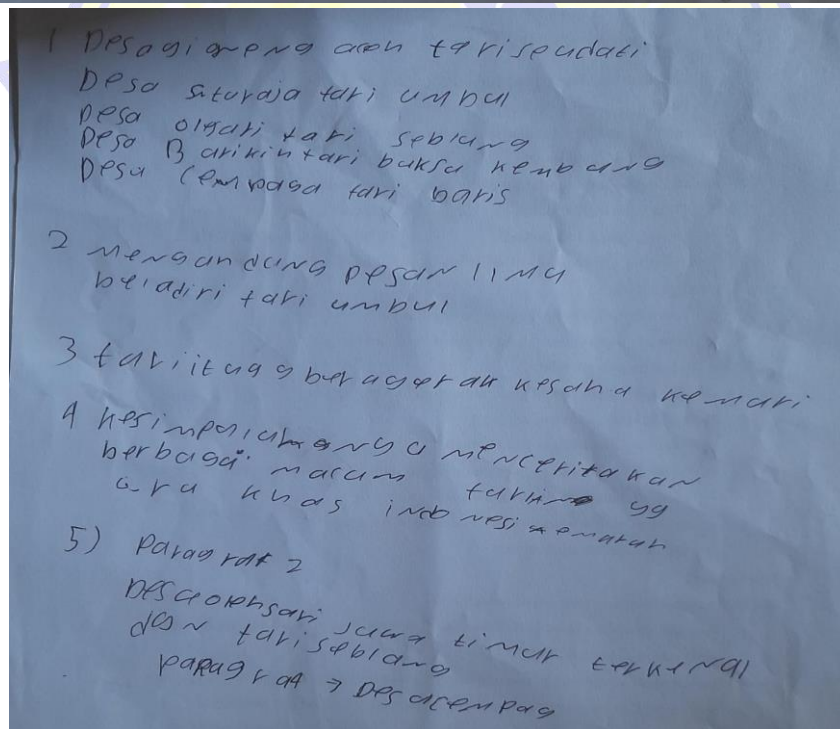 1 Desagigreng aceh tariseudati
Desa saturaja tari umbul
Desa olgari tari seblang
Desa Barikintari baksa kembang
Desa Cempaga tari baris
2 mengandung pesan lima
beladiri tari umbul
3 tari itu yg beragerak kesana kemari
4 kesimpulannya menceritakan
berbagai macam tarian yg
ara khas indonesi
5) Paragraf 2
Desaolehsari jawa timur terkenal
dgn tariseblang
paragraf → Desacempag